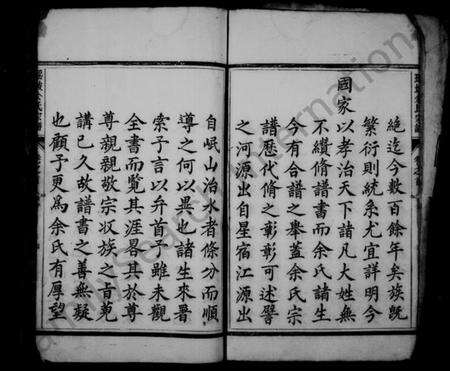 絶迄今數百餘年矣族既
繁衍則統系尤宜詳明今
國家以孝治天下諸凡大姓無
不纘脩譜書而余氏諸生
今有合譜之舉蓋余氏宗
譜歷代脩之彰彰可述譬
之河源出自星宿江源出
自岷山治水者條分而順
導之何以異也諸生來晉
索予言以弁首予雖未觀
全書而覽其涯畧其於尊
尊親親敬宗收族之旨蒐
講已久故譜書之善無疑
也顧予更為余氏有厚望